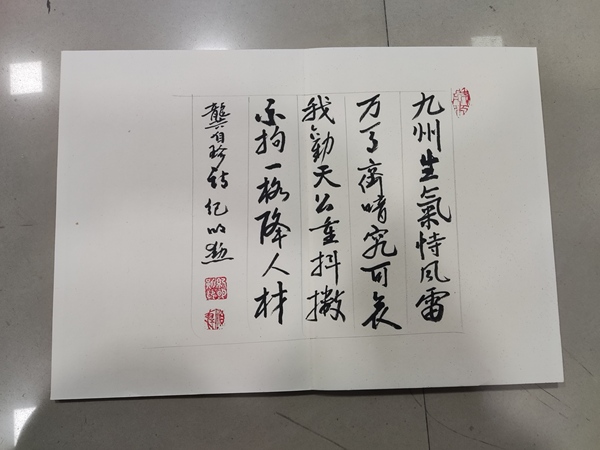 九州生氣恃风雷
万马齊喑究可哀
我勸天公重抖擞
不拘一格降人材
龔自珍詩 纪明